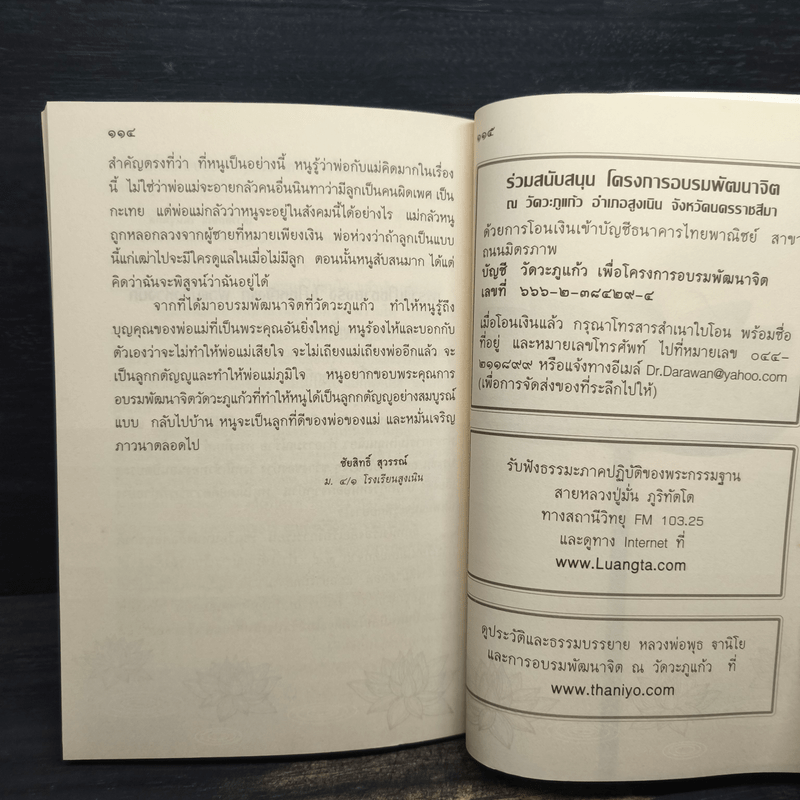 ๑๑๔
สำคัญตรงที่ว่า ที่หนูเป็นอย่างนี้ หนูรู้ว่าพ่อกับแม่คิดมากในเรื่อง
นี้ ไม่ใช่ว่าพ่อแม่จะอายกลัวคนอื่นนินทาว่ามีลูกเป็นคนผิดเพศ เป็น
กะเทย แต่พ่อแม่กลัวว่าหนูจะอยู่ในสังคมนี้ได้อย่างไร แม่กลัวหนู
ถูกหลอกลวงจากผู้ชายที่หมายเพียงเงิน พ่อห่วงว่าถ้าลูกเป็นแบบ
นี้แก่เฒ่าไปจะมีใครดูแลในเมื่อไม่มีลูก ตอนนั้นหนูสับสนมาก ได้แต่
คิดว่าฉันจะพิสูจน์ว่าฉันอยู่ได้
จากที่ได้มาอบรมพัฒนาจิตที่วัดวะภูแก้ว ทำให้หนูรู้ถึง
บุญคุณของพ่อแม่ที่เป็นพระคุณอันยิ่งใหญ่ หนูร้องไห้และบอกกับ
ตัวเองว่าจะไม่ทำให้พ่อแม่เสียใจ จะไม่เถียงแม่เถียงพ่ออีกแล้ว จะ
เป็นลูกกตัญญูและทำให้พ่อแม่ภูมิใจ หนูอยากขอบพระคุณการ
อบรมพัฒนาจิตวัดวะภูแก้วที่ทำให้หนูได้เป็นลูกกตัญญูอย่างสมบูรณ์
แบบ กลับไปบ้าน หนูจะเป็นลูกที่ดีของพ่อของแม่ และหมั่นเจริญ
ภาวนาตลอดไป
ชัยสิทธิ์ สุวรรณ์
ม. ๔/๑ โรงเรียนสูงเนิน
๑๑๕
ร่วมสนับสนุน โครงการอบรมพัฒนาจิต
ณ วัดวะภูแก้ว อำเภอสูงเนิน จังหวัดนครราชสีมา
ด้วยการโอนเงินเข้าบัญชีธนาคารไทยพาณิชย์ สาขา
ถนนมิตรภาพ
บัญชี วัดวะภูแก้ว เพื่อโครงการอบรมพัฒนาจิต
เลขที่ ๖๖๖-๒-๓๘๔๒๙-๔
เมื่อโอนเงินแล้ว กรุณาโทรสารสำเนาใบโอน พร้อมชื่อ
ที่อยู่ และหมายเลขโทรศัพท์ ไปที่หมายเลข ๐๔๔-
๒๑๑๘๙๙ หรือแจ้งทางอีเมล์ Dr.Darawan@yahoo.com
(เพื่อการจัดส่งของที่ระลึกไปให้)
รับฟังธรรมะภาคปฏิบัติของพระกรรมฐาน
สายหลวงปู่มั่น ภูริทัตโต
ทางสถานีวิทยุ FM 103.25
และดูทาง Internet ที่
www.Luangta.com
ดูประวัติและธรรมบรรยาย หลวงพ่อพุธ ฐานิโย
และการอบรมพัฒนาจิต ณ วัดวะภูแก้ว ที่
www.thaniyo.com